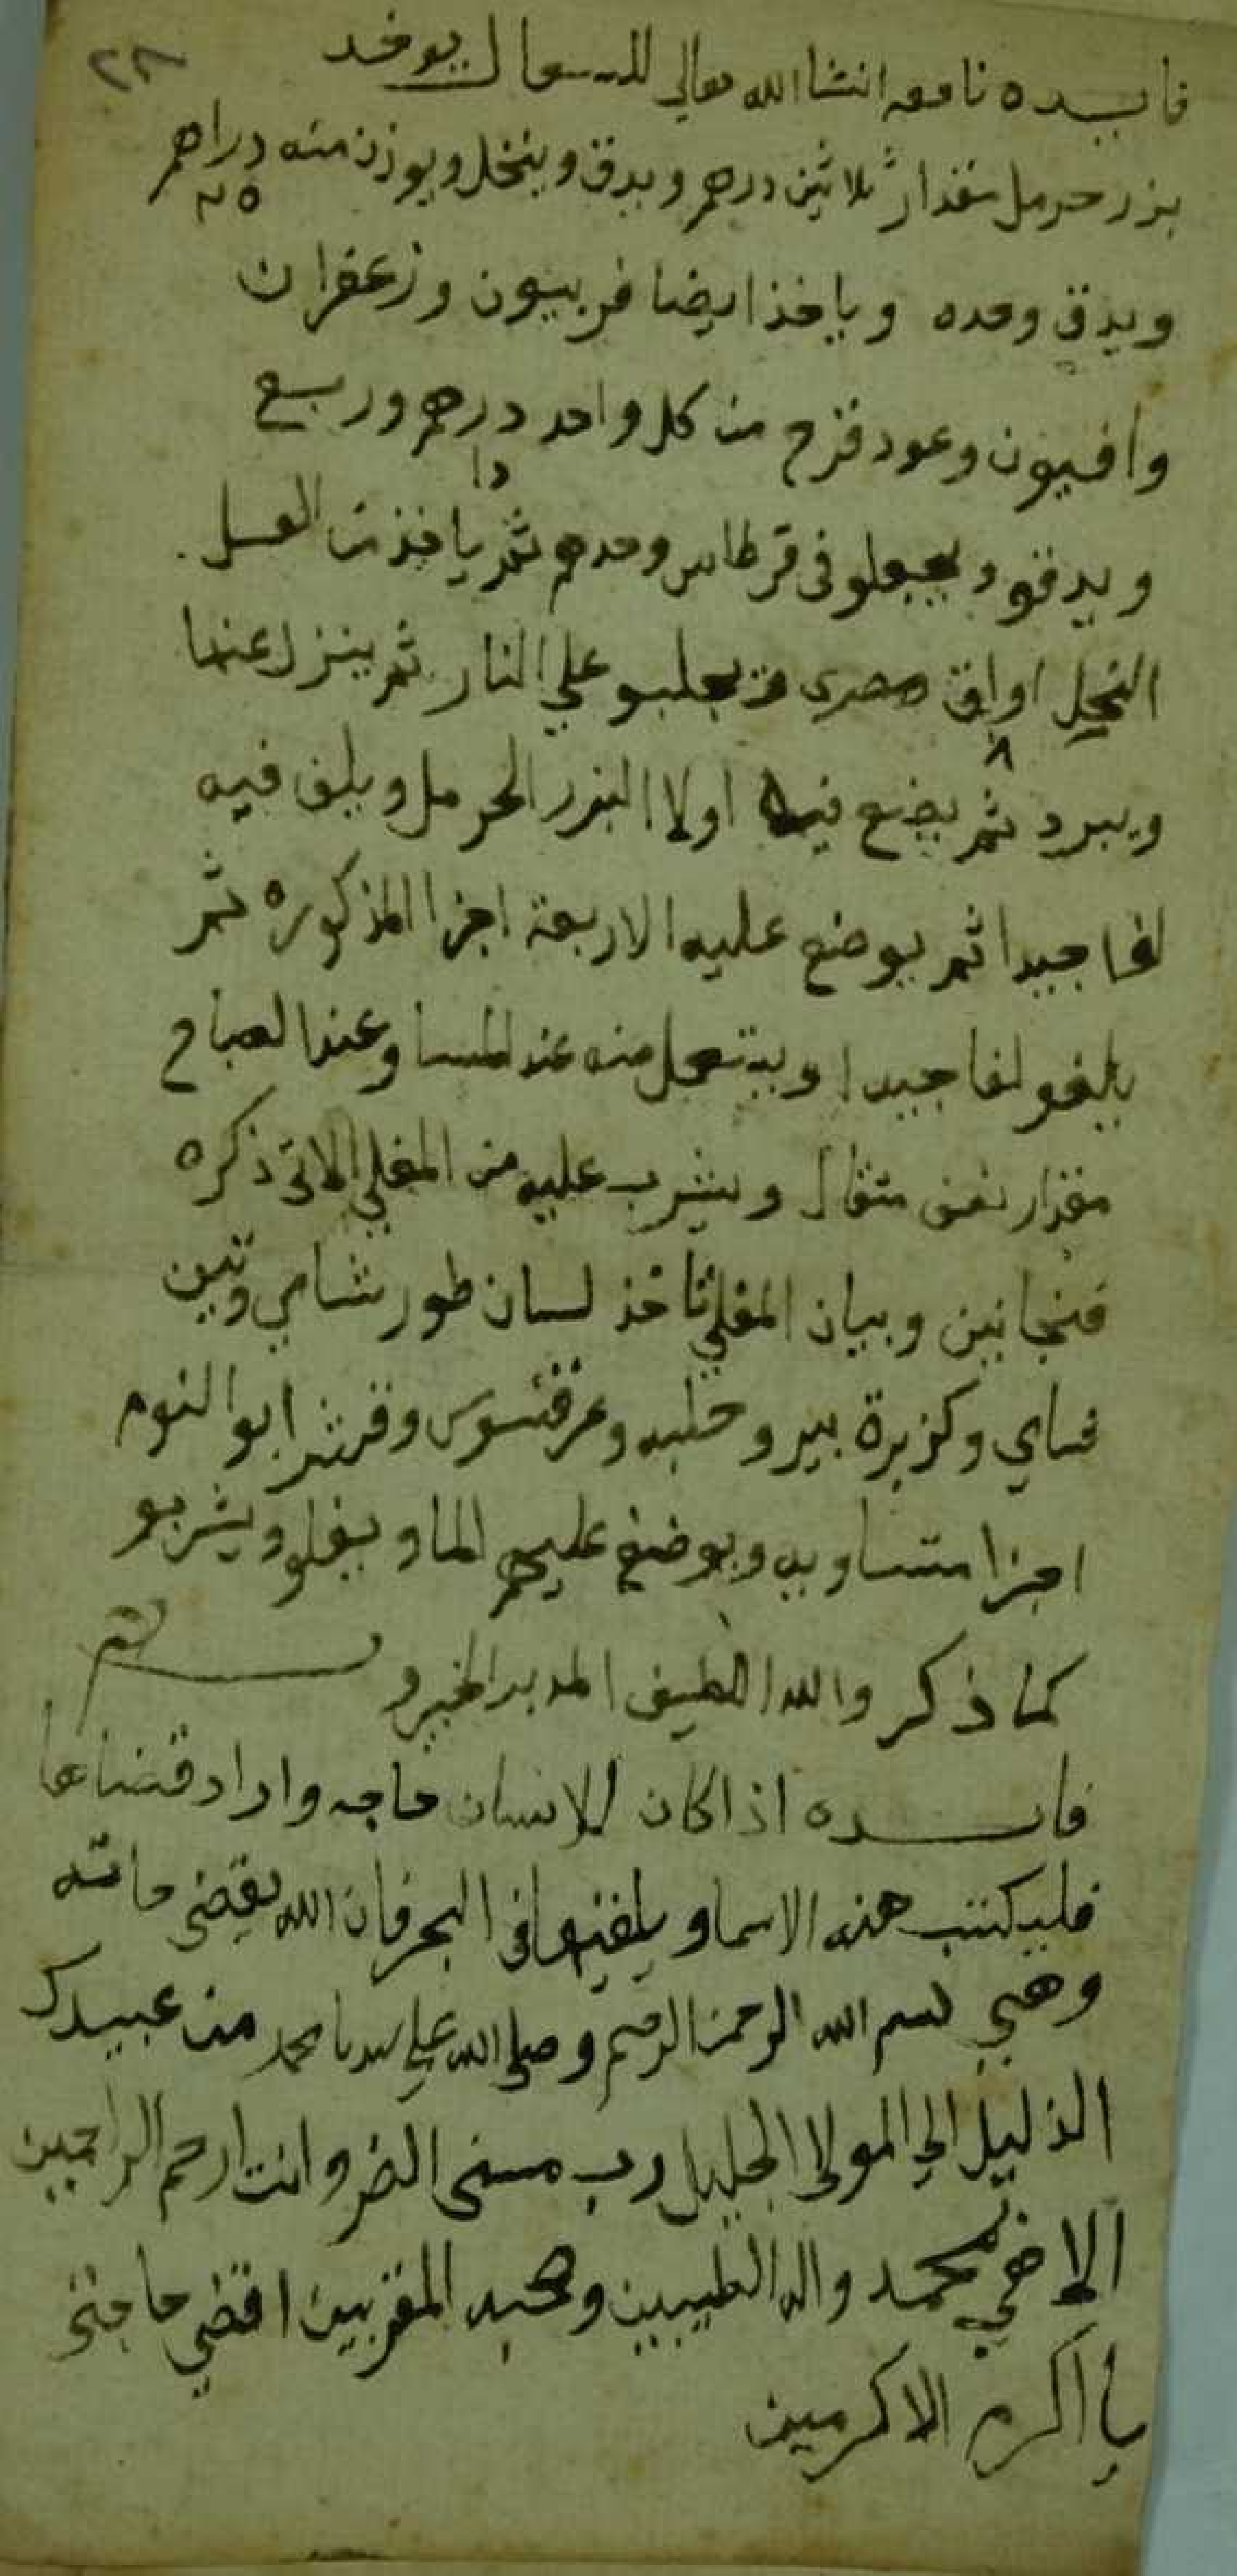 ٢٨
فايده نافعه انشا الله تعالي للسعال يوخد
بزر حرمل مقدار ثلاثين درهم ويدق وينخل ويوزن منه دراهم
٢٥
ويدق وحده وياخذ ايضا فربيون وزعفران
وافيون وعود قرح من كل واحد درهم وربع
ويدقو ويجعلو في قرطاس وحدهم ثم ياخذ من العسل
النحل اواق مصري علي النار ثم ينزل عنها
٨
ويبرد ثم يضع فيه اولا البزر الحرمل ويلف فيه
لفا جيدا ثم يوضع عليه الاربعة اجزا المذكوره ثم
يلفو لفا جيدا ويستعمل منه عند المسا وعند الصباح
مقدار نصف مثقال ويشرب عليه من المغلي الاتي ذكره
فنجانين وبيان المغلي تاخذ لسان طور شامي وتين
وكزبرة بير وحلبه وعرقسوس وقشر ابو النوم
اجزا متساويه ويوضع عليهم الما ويغلو ويشربو
كما ذكر والله اللطيف المدبر الخبير و
فايده اذا كان للانسان حاجه واراد قضاها
فليكتب هذه الاسما ويلقيها في البحر فان الله يقضي حاجته
وهي بسم الله الرحمن الرحيم وصلي الله علي سيدنا محمد من عبيدك
الذليل الي المولا الجليل رب مسني الضر وانت ارحم الراحمين
الاهي بمحمد واله الطيبين وصحبه المقربين اقضي حاجتي
يا اكرم الاكرمين